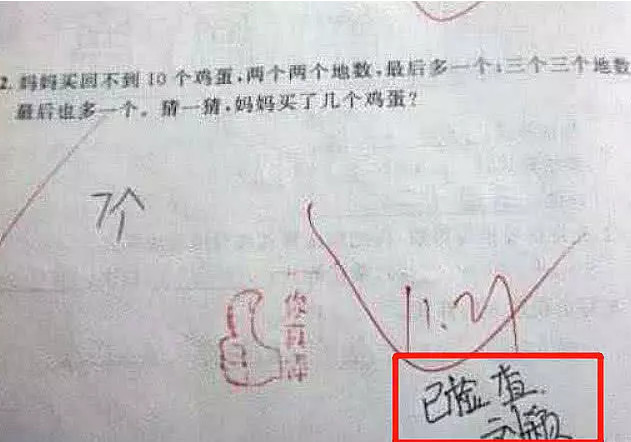 2. 妈妈买回不到10个鸡蛋,两个两个地数,最后多一个;三个三个地数
最后也多一个。猜一猜,妈妈买了几个鸡蛋?
7个
你真棒
11.27
已检查